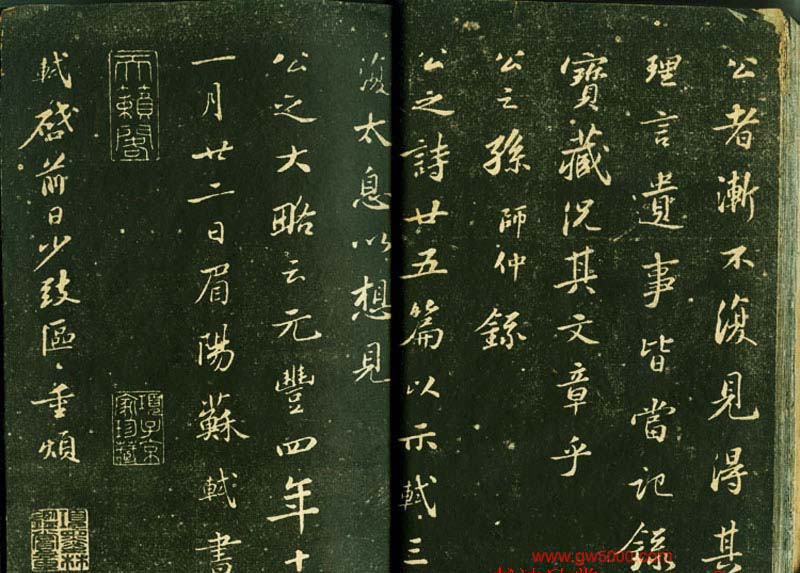 公者漸不復見得其
理言遺事皆當記錄
寶藏況其文章乎
公之孫師仲錄
公之詩廿五篇以示軾三
復太息以想見
公之大略云元豐四年十
一月廿二日眉陽蘇軾書
天籟閣
項子京家珍藏
軾啓前日少致區〻重煩
www.gw5000.com